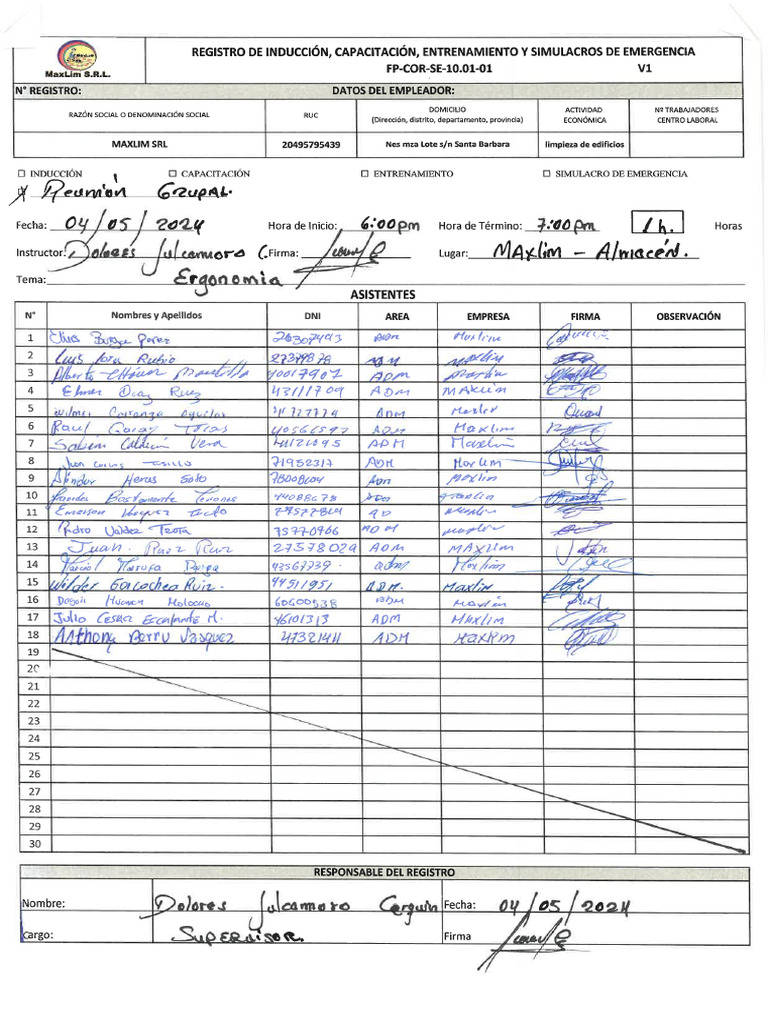 MaxLim S.R.L.
REGISTRO DE INDUCCIÓN, CAPACITACIÓN, ENTRENAMIENTO Y SIMULACROS DE EMERGENCIA
FP-COR-SE-10.01-01 V1
N° REGISTRO: DATOS DEL EMPLEADOR:
RAZÓN SOCIAL O DENOMINACIÓN SOCIAL RUC DOMICILIO (Dirección, distrito, departamento, provincia) ACTIVIDAD ECONÓMICA Nº TRABAJADORES CENTRO LABORAL
MAXLIM SRL 20495795439 Nes mza Lote s/n Santa Barbara limpieza de edificios
☐ INDUCCIÓN ☐ CAPACITACIÓN ☐ ENTRENAMIENTO ☐ SIMULACRO DE EMERGENCIA
x Reunión Grupal.
Fecha: 04/05/2024 Hora de Inicio: 6:00pm Hora de Término: 7:00pm 1h. Horas
Instructor: Dolores Julcamoro C. Firma: Lugar: MAxlim - Almacén.
Tema: Ergonomia
ASISTENTES
N° Nombres y Apellidos DNI AREA EMPRESA FIRMA OBSERVACIÓN
1 Perez ADM Maxlim
2 Luis Rubio 27379878 ADM Maxlim
3 Alberto 40017907 ADM Maxlim
4 Elmer Diaz Ruiz 43111709 ADM MAxlim
5 Wilmer Carranza ADM Maxlim
6 Raul Garay 40566597 ADM Maxlim
7 Calderón Vera 41121095 ADM Maxlim
8 Juan Carlos 71952317 ADM Maxlim
9 Heras Soto 78008604 ADM Maxlim
10 Bustamante 44088678 ADM
11 Emerson AD
12 Pedro Valdez 75770966 ADM
13 Juan. Ruiz Ruiz 27578029 ADM MAxlim
14 43567739 adm Maxlim
15 Wilder Gorcochea Ruiz. 44511951 ADM. Maxlim
16 Huaman 60600938 ADM Maxlim
17 Julio Cesar Escalante M. 46101313 ADM Maxlim
18 Anthony Berru Vasquez 47321411 ADM Maxlim
19
20
21
22
23
24
25
26
27
28
29
30
RESPONSABLE DEL REGISTRO
Nombre: Dolores Julcamoro Cerquin Fecha: 04/05/2024
Cargo: Supervisor. Firma